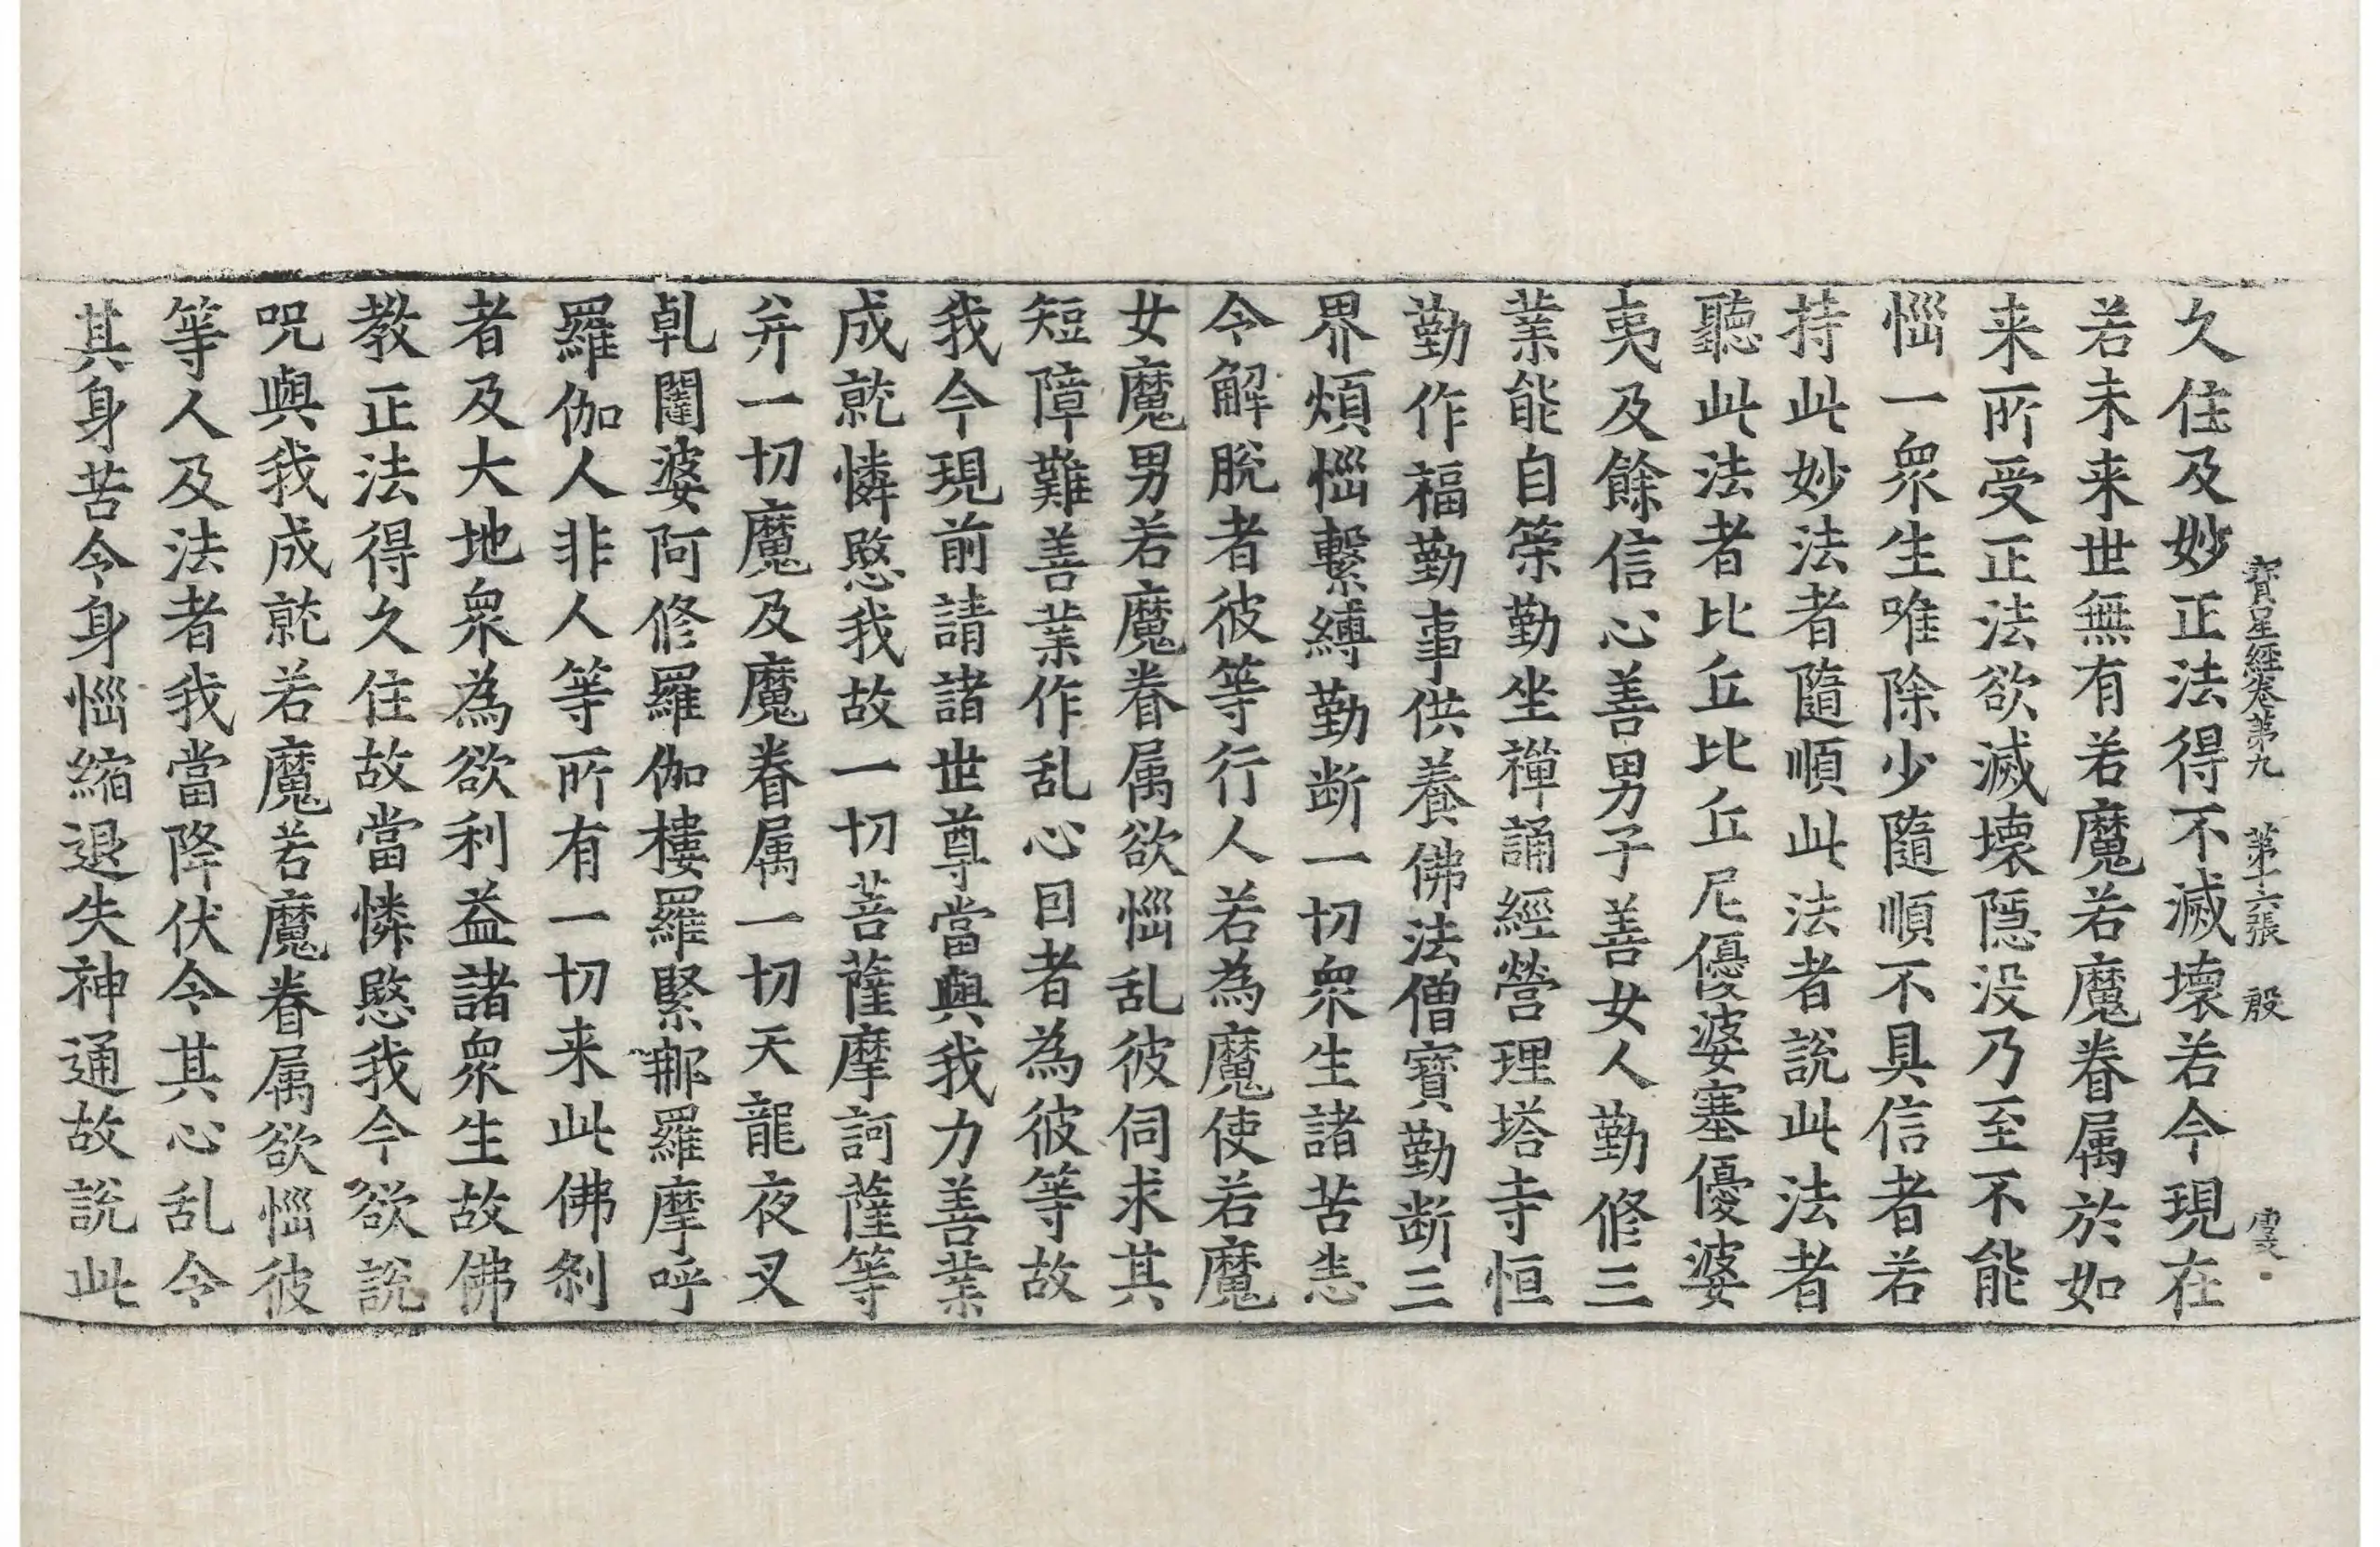 寳星經卷第九　第十六張　殷
久住及妙正法得不滅壞若今現在
若未来世無有若魔若魔眷属於如
来所受正法欲滅壞隱没乃至不能
惱一衆生唯除少隨順不具信者若
持此妙法者隨順此法者說此法者
聽此法者比丘比丘尼優婆塞優婆
夷及餘信心善男子善女人勤修三
業能自策勤坐禪誦經營理塔寺恒
勤作福勤事供養佛法僧寶勤断三
界煩惱繫縛勤断一切衆生諸苦悉
令解脫者彼等行人若為魔使若魔
女魔男若魔眷属欲惱乱彼伺求其
短障難善業作乱心因者為彼等故
我今現前請諸世尊當與我力善業
成就憐愍我故一切菩薩摩訶薩等
并一切魔及魔眷属一切天龍夜叉
乹闥婆阿修羅伽樓羅緊那羅摩呼
羅伽人非人等所有一切来此佛刹
者及大地衆為欲利益諸衆生故佛
教正法得久住故當憐愍我今欲說
呪與我成就若魔若魔眷属欲惱彼
等人及法者我當降伏令其心乱令
其身苦令身惱縮退失神通故說此